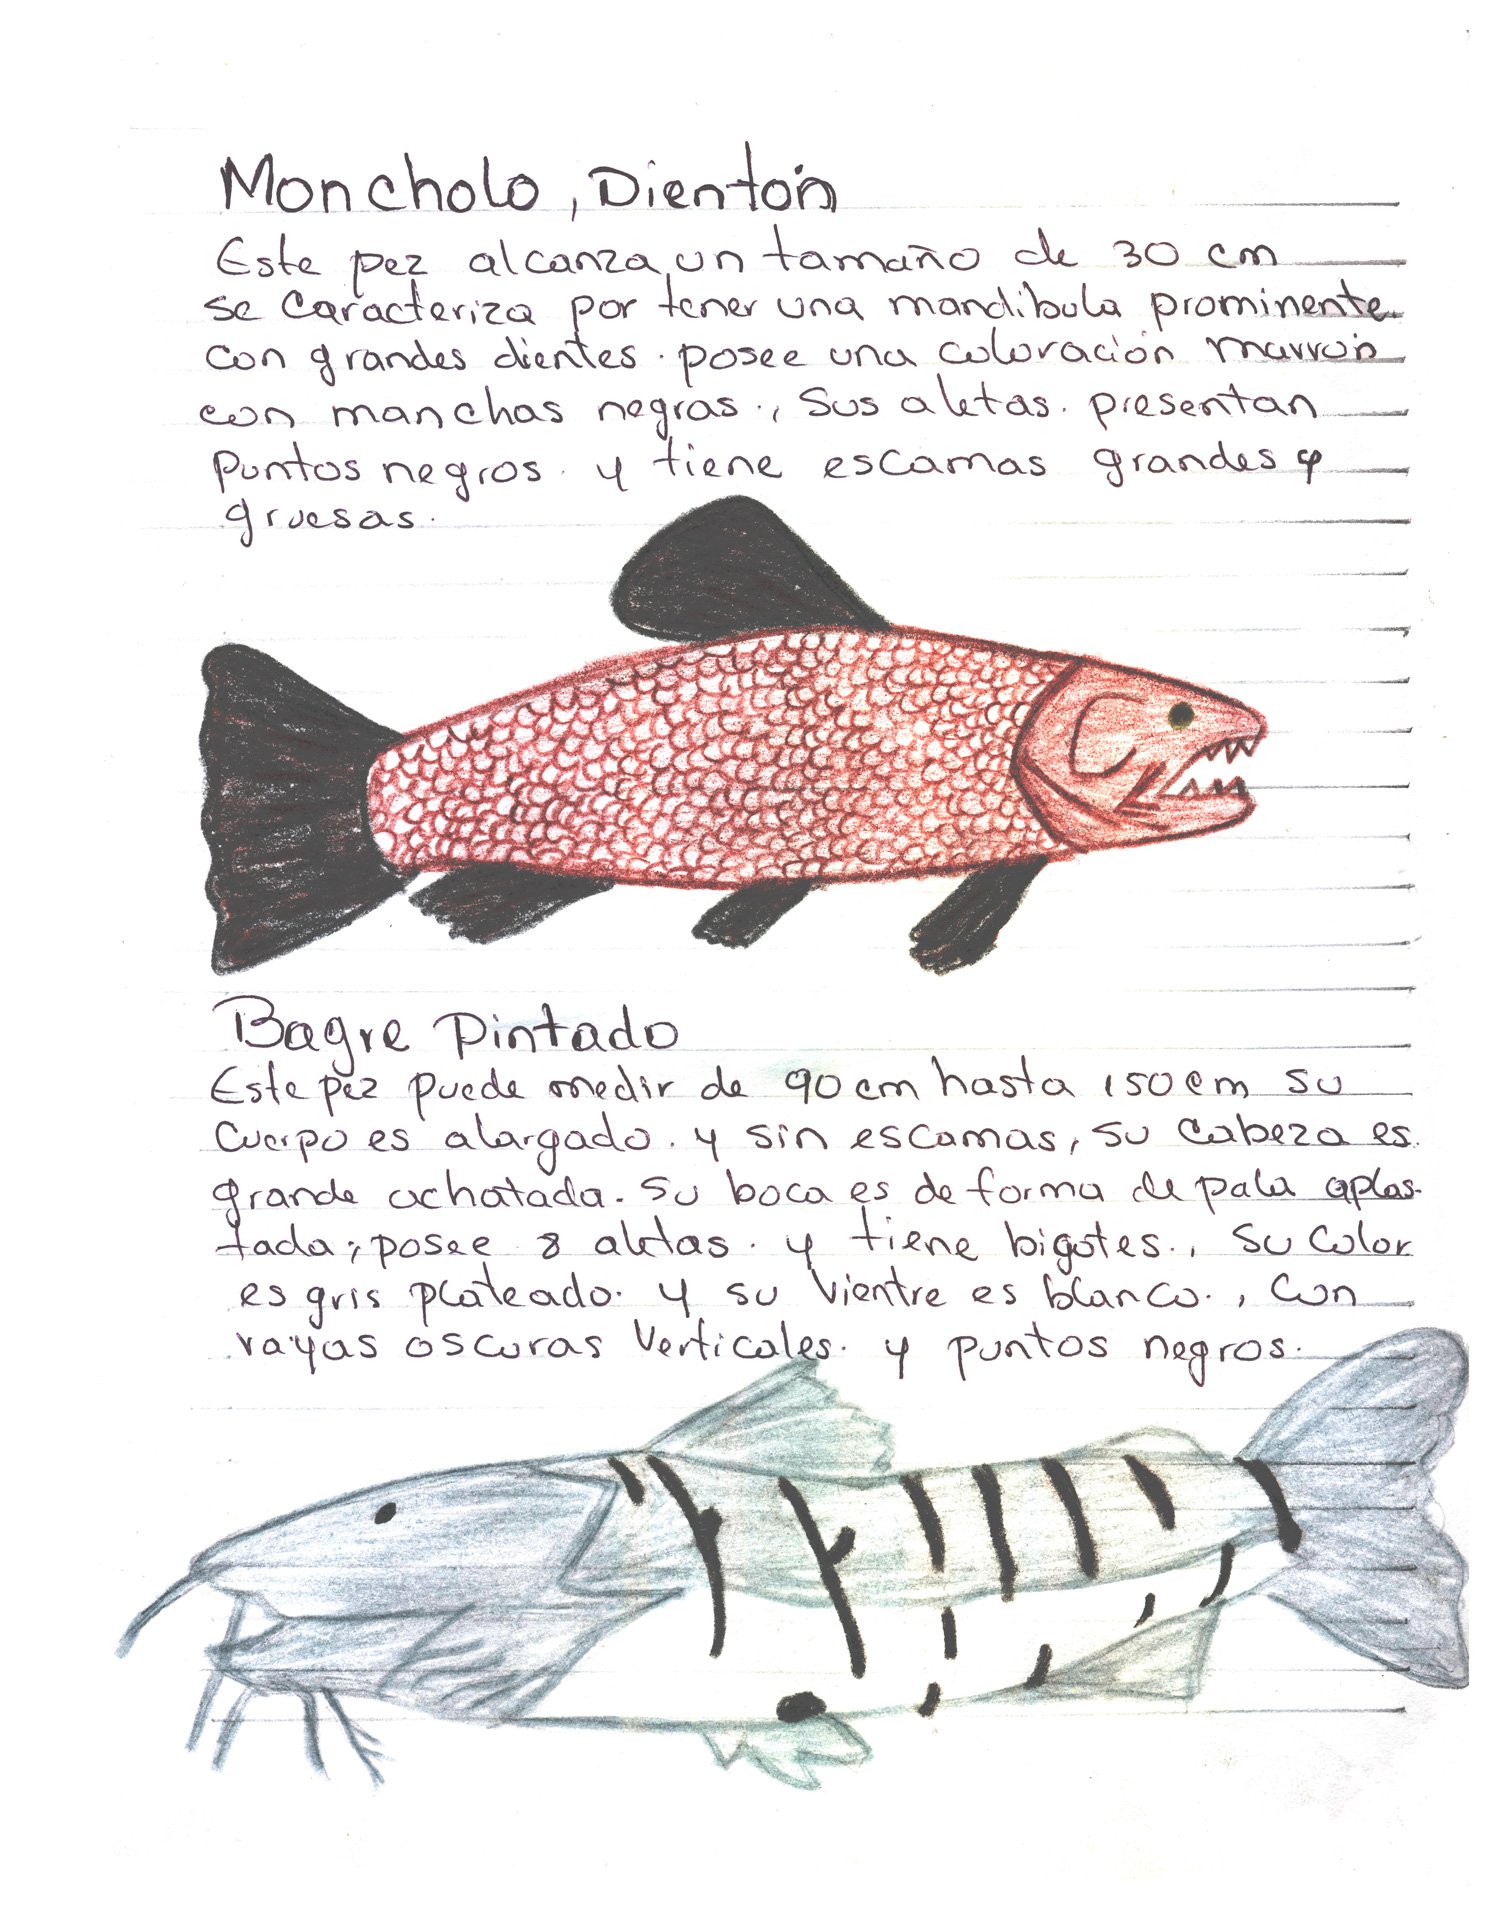 Moncholo, Dientón
Este pez alcanza, un tamaño de 30 cm
se caracteriza por tener una mandibula prominente.
con grandes dientes. posee una coloración marrón
con manchas negras., Sus aletas. presentan
puntos negros. y tiene escamas grandes y
gruesas.
Bagre Pintado
Este pez puede medir de 90 cm hasta 150 cm su
cuerpo es alargado. y sin escamas, su cabeza es.
grande achatada. su boca es de forma de pala aplas-
tada; posee 8 aletas. y tiene bigotes., su color
es gris plateado. y su vientre es blanco., con
rayas oscuras verticales. y puntos negros.